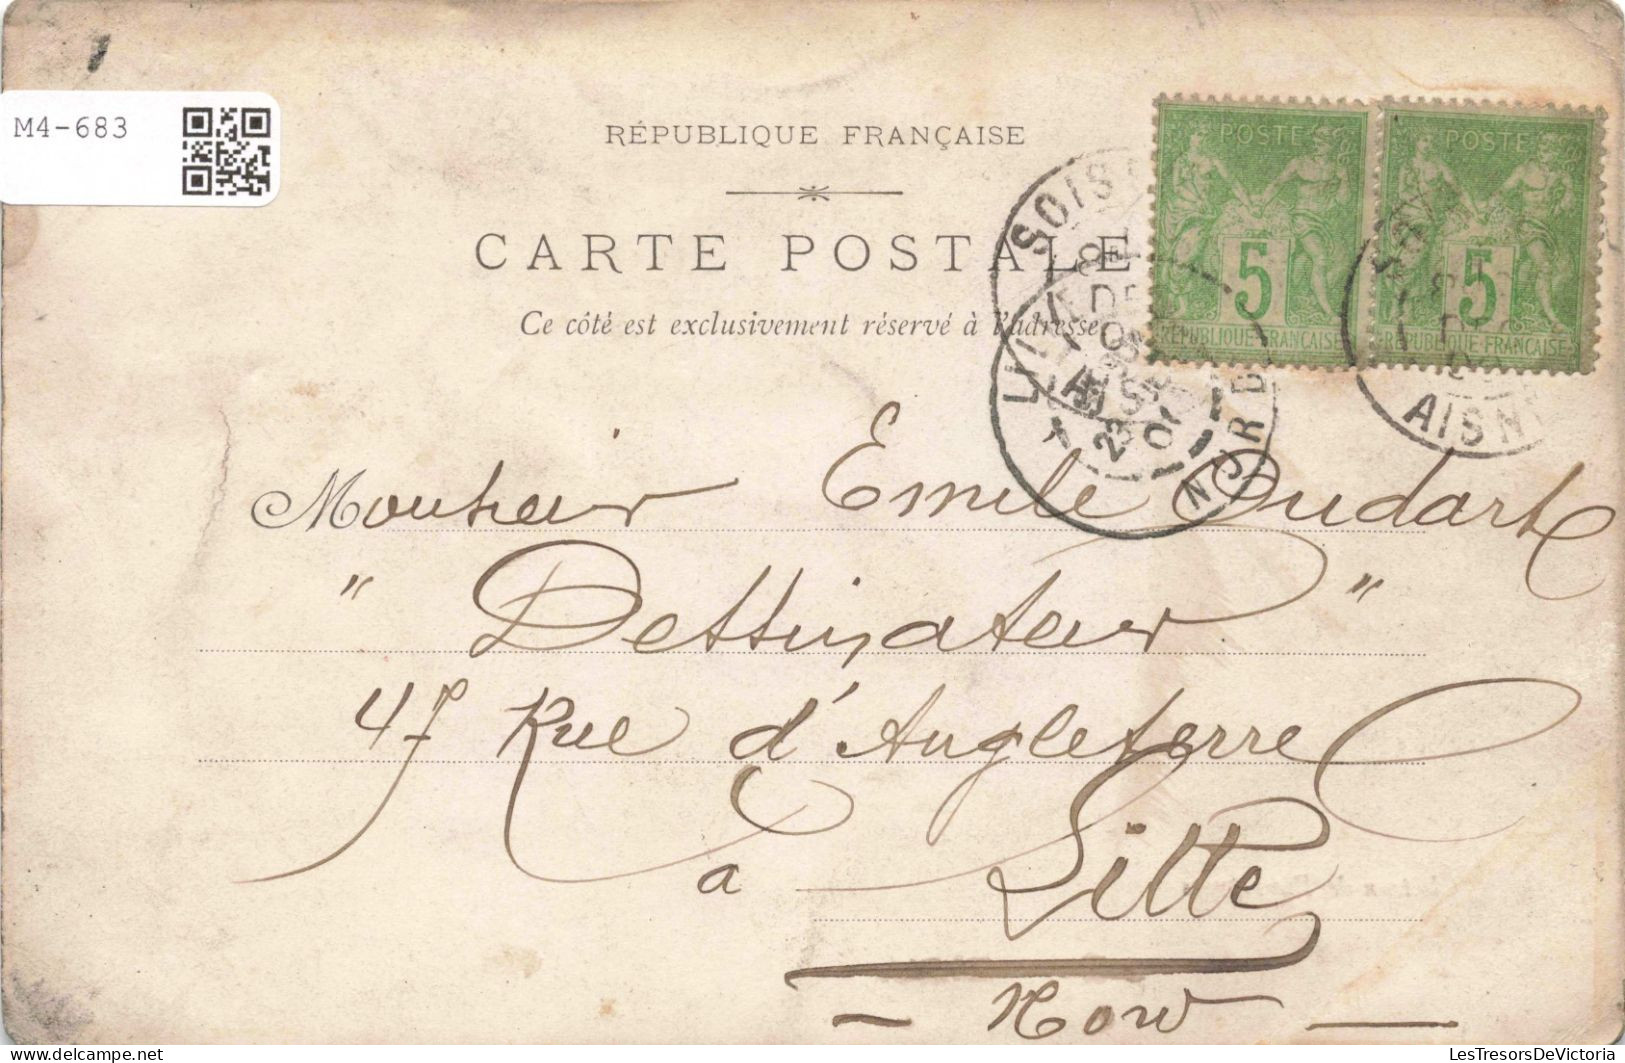 M4-683
RÉPUBLIQUE FRANÇAISE
CARTE POSTALE
Ce côté est exclusivement réservé à l'adresse
POSTE
5
RÉPUBLIQUE FRANÇAISE
POSTE
5
RÉPUBLIQUE FRANÇAISE
AISNE
LILLE
NORD
23
01
Monsieur Emile Oudart
" Dessinateur "
47 Rue d'Angleterre
a Lille
- Nord -
delcampe.net
LesTresorsDeVictoria